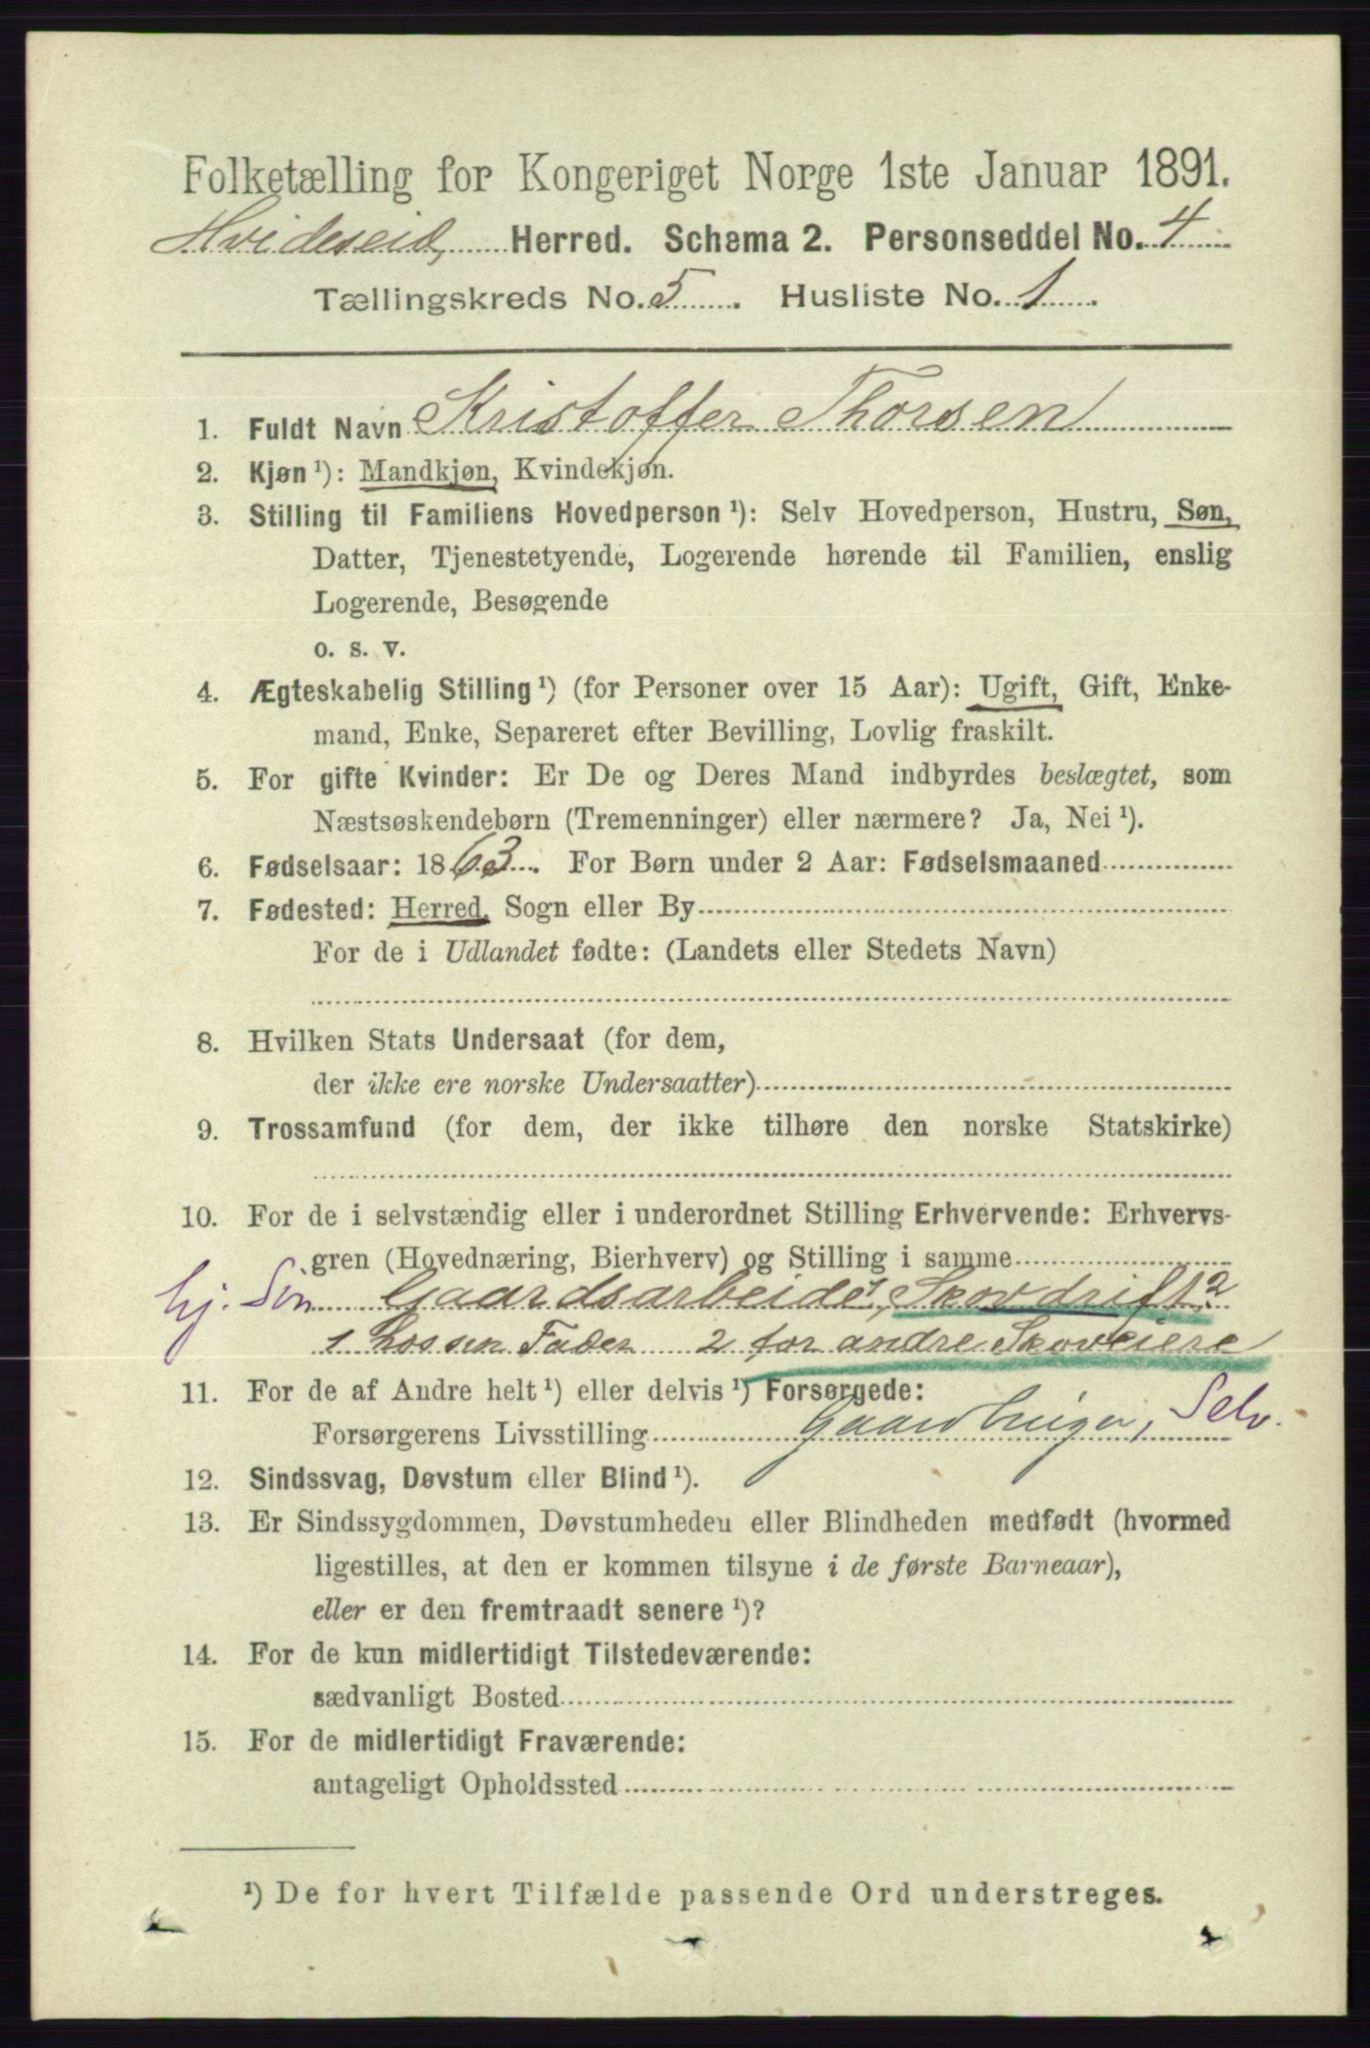 Folketælling for Kongeriget Norge 1ste Januar 1891.
Hvideseid Herred. Schema 2. Personseddel No. 4
Tællingskreds No. 5. Husliste No. 1.
1. Fuldt Navn Kristoffer Thorsen
2. Kjøn¹): Mandkjøn, Kvindekjøn.
3. Stilling til Familiens Hovedperson¹): Selv Hovedperson, Hustru, Søn,
Datter, Tjenestetyende, Logerende hørende til Familien, enslig
Logerende, Besøgende
o. s. v.
4. Ægteskabelig Stilling¹) (for Personer over 15 Aar): Ugift, Gift, Enke-
mand, Enke, Separeret efter Bevilling, Lovlig fraskilt.
5. For gifte Kvinder: Er De og Deres Mand indbyrdes beslægtet, som
Næstsøskendebørn (Tremenninger) eller nærmere? Ja, Nei¹).
6. Fødselsaar: 1863. For Børn under 2 Aar: Fødselsmaaned
7. Fødested: Herred, Sogn eller By
For de i Udlandet fødte: (Landets eller Stedets Navn)
8. Hvilken Stats Undersaat (for dem,
der ikke ere norske Undersaatter)
9. Trossamfund (for dem, der ikke tilhøre den norske Statskirke)
10. For de i selvstændig eller i underordnet Stilling Erhvervende: Erhvervs-
gren (Hovednæring, Bierhverv) og Stilling i samme
hj. Søn Gaardsarbeide¹, Skovdrift 2
1 hos sin Fader 2 for andre Skoveiere
11. For de af Andre helt¹) eller delvis¹) Forsørgede:
Forsørgerens Livsstilling Gaardbruger, Selv.
12. Sindssvag, Døvstum eller Blind¹).
13. Er Sindssygdommen, Døvstumheden eller Blindheden medfødt (hvormed
ligestilles, at den er kommen tilsyne i de første Barneaar),
eller er den fremtraadt senere¹)?
14. For de kun midlertidigt Tilstedeværende:
sædvanligt Bosted
15. For de midlertidigt Fraværende:
antageligt Opholdssted
¹) De for hvert Tilfælde passende Ord understreges.